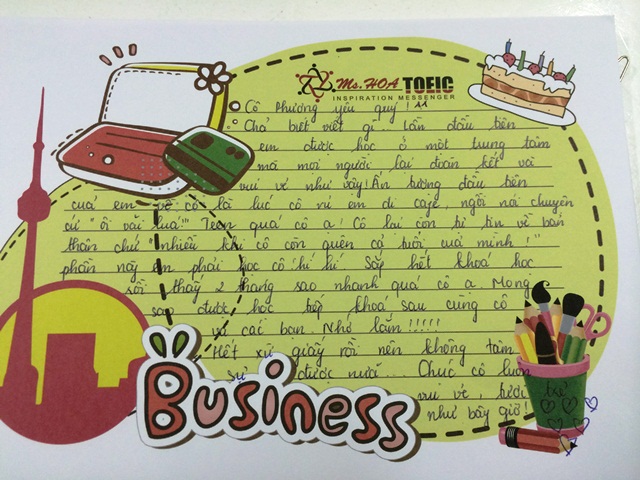 Ms. HOA TOEIC
INSPIRATION MESSENGER
Cô Phương yêu quý! ^^
Chả biết viết gì. Lần đầu tiên
em được học ở một trung tâm
mà mọi người lại đoàn kết và
vui vẻ như vậy! Ấn tượng đầu tiên
của em về cô là lúc cô rủ em đi cafe, ngồi nói chuyện
cứ "ôi dồi" Teen quá cô ạ! Cô lại còn tự tin về bản
thân chứ "nhiều khi cô còn quên cả tuổi của mình!"
phần này em phải học cô hí hí. Sắp hết khoá học
rồi thấy 2 tháng sao nhanh quá cô ạ. Mong
sao được học tiếp khoá sau cùng cô
và các bạn. Nhớ lắm!!!!!
Hết xừ giấy rồi nên không tâm
sự được nưới... Chúc cô luôn
vui vẻ, tươi trẻ
như bây giờ!
BUSINESS